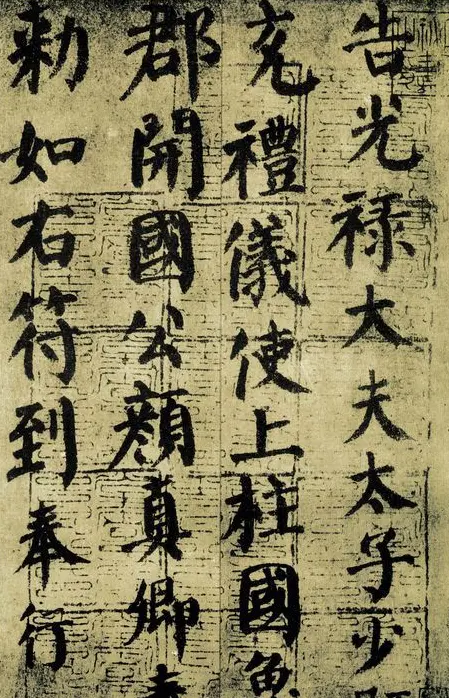 告光禄大夫太子少
充禮儀使上柱國魚
郡開國公顏真卿奉
勅如右符到奉行